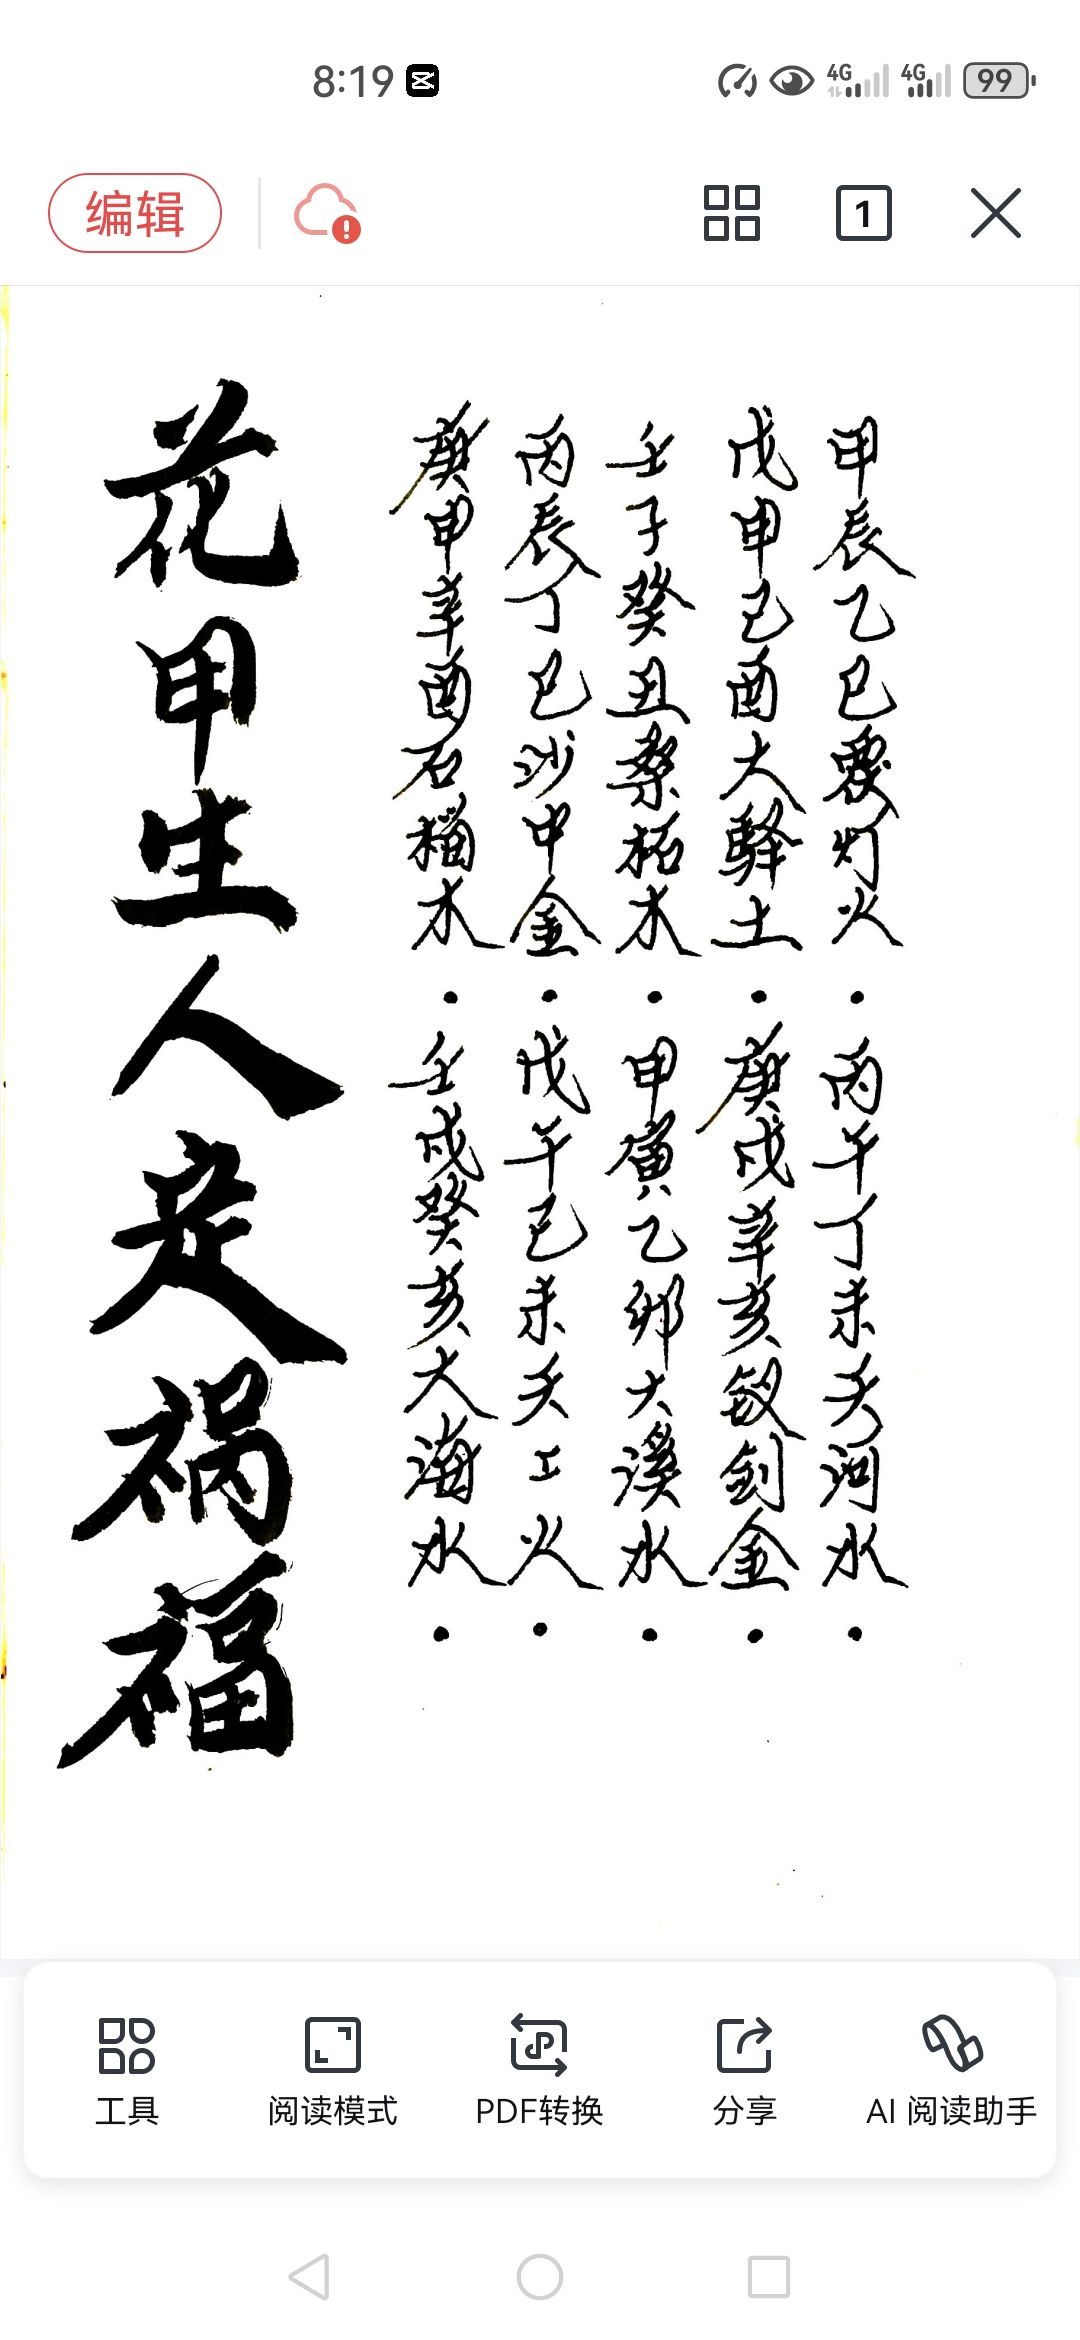 8:19
4G 4G 99
编辑
1
甲辰乙巳覆灯火·丙午丁未天河水·
戊申己酉大驿土·庚戌辛亥钗钏金·
壬子癸丑桑柘木·甲寅乙卯大溪水·
丙辰丁巳沙中金·戊午己未天上火·
庚申辛酉石榴木·壬戌癸亥大海水·
花甲生人定祸福
工具
阅读模式
PDF转换
分享
AI 阅读助手